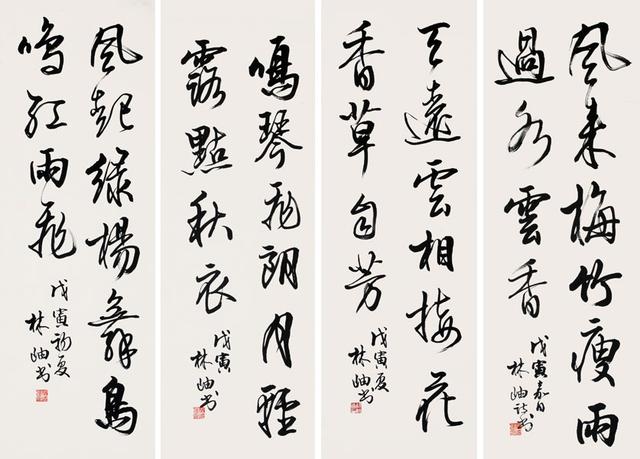 风来梅竹瘦雨
過水雲香
戊寅嘉日
林岫诗书
天遠雲相接花
香草自芳
戊寅夏
林岫书
鳴琴飛朗月輕
露點秋衣
戊寅
林岫书
风起绿楊舞鳥
鳴红雨飛
戊寅初夏
林岫书